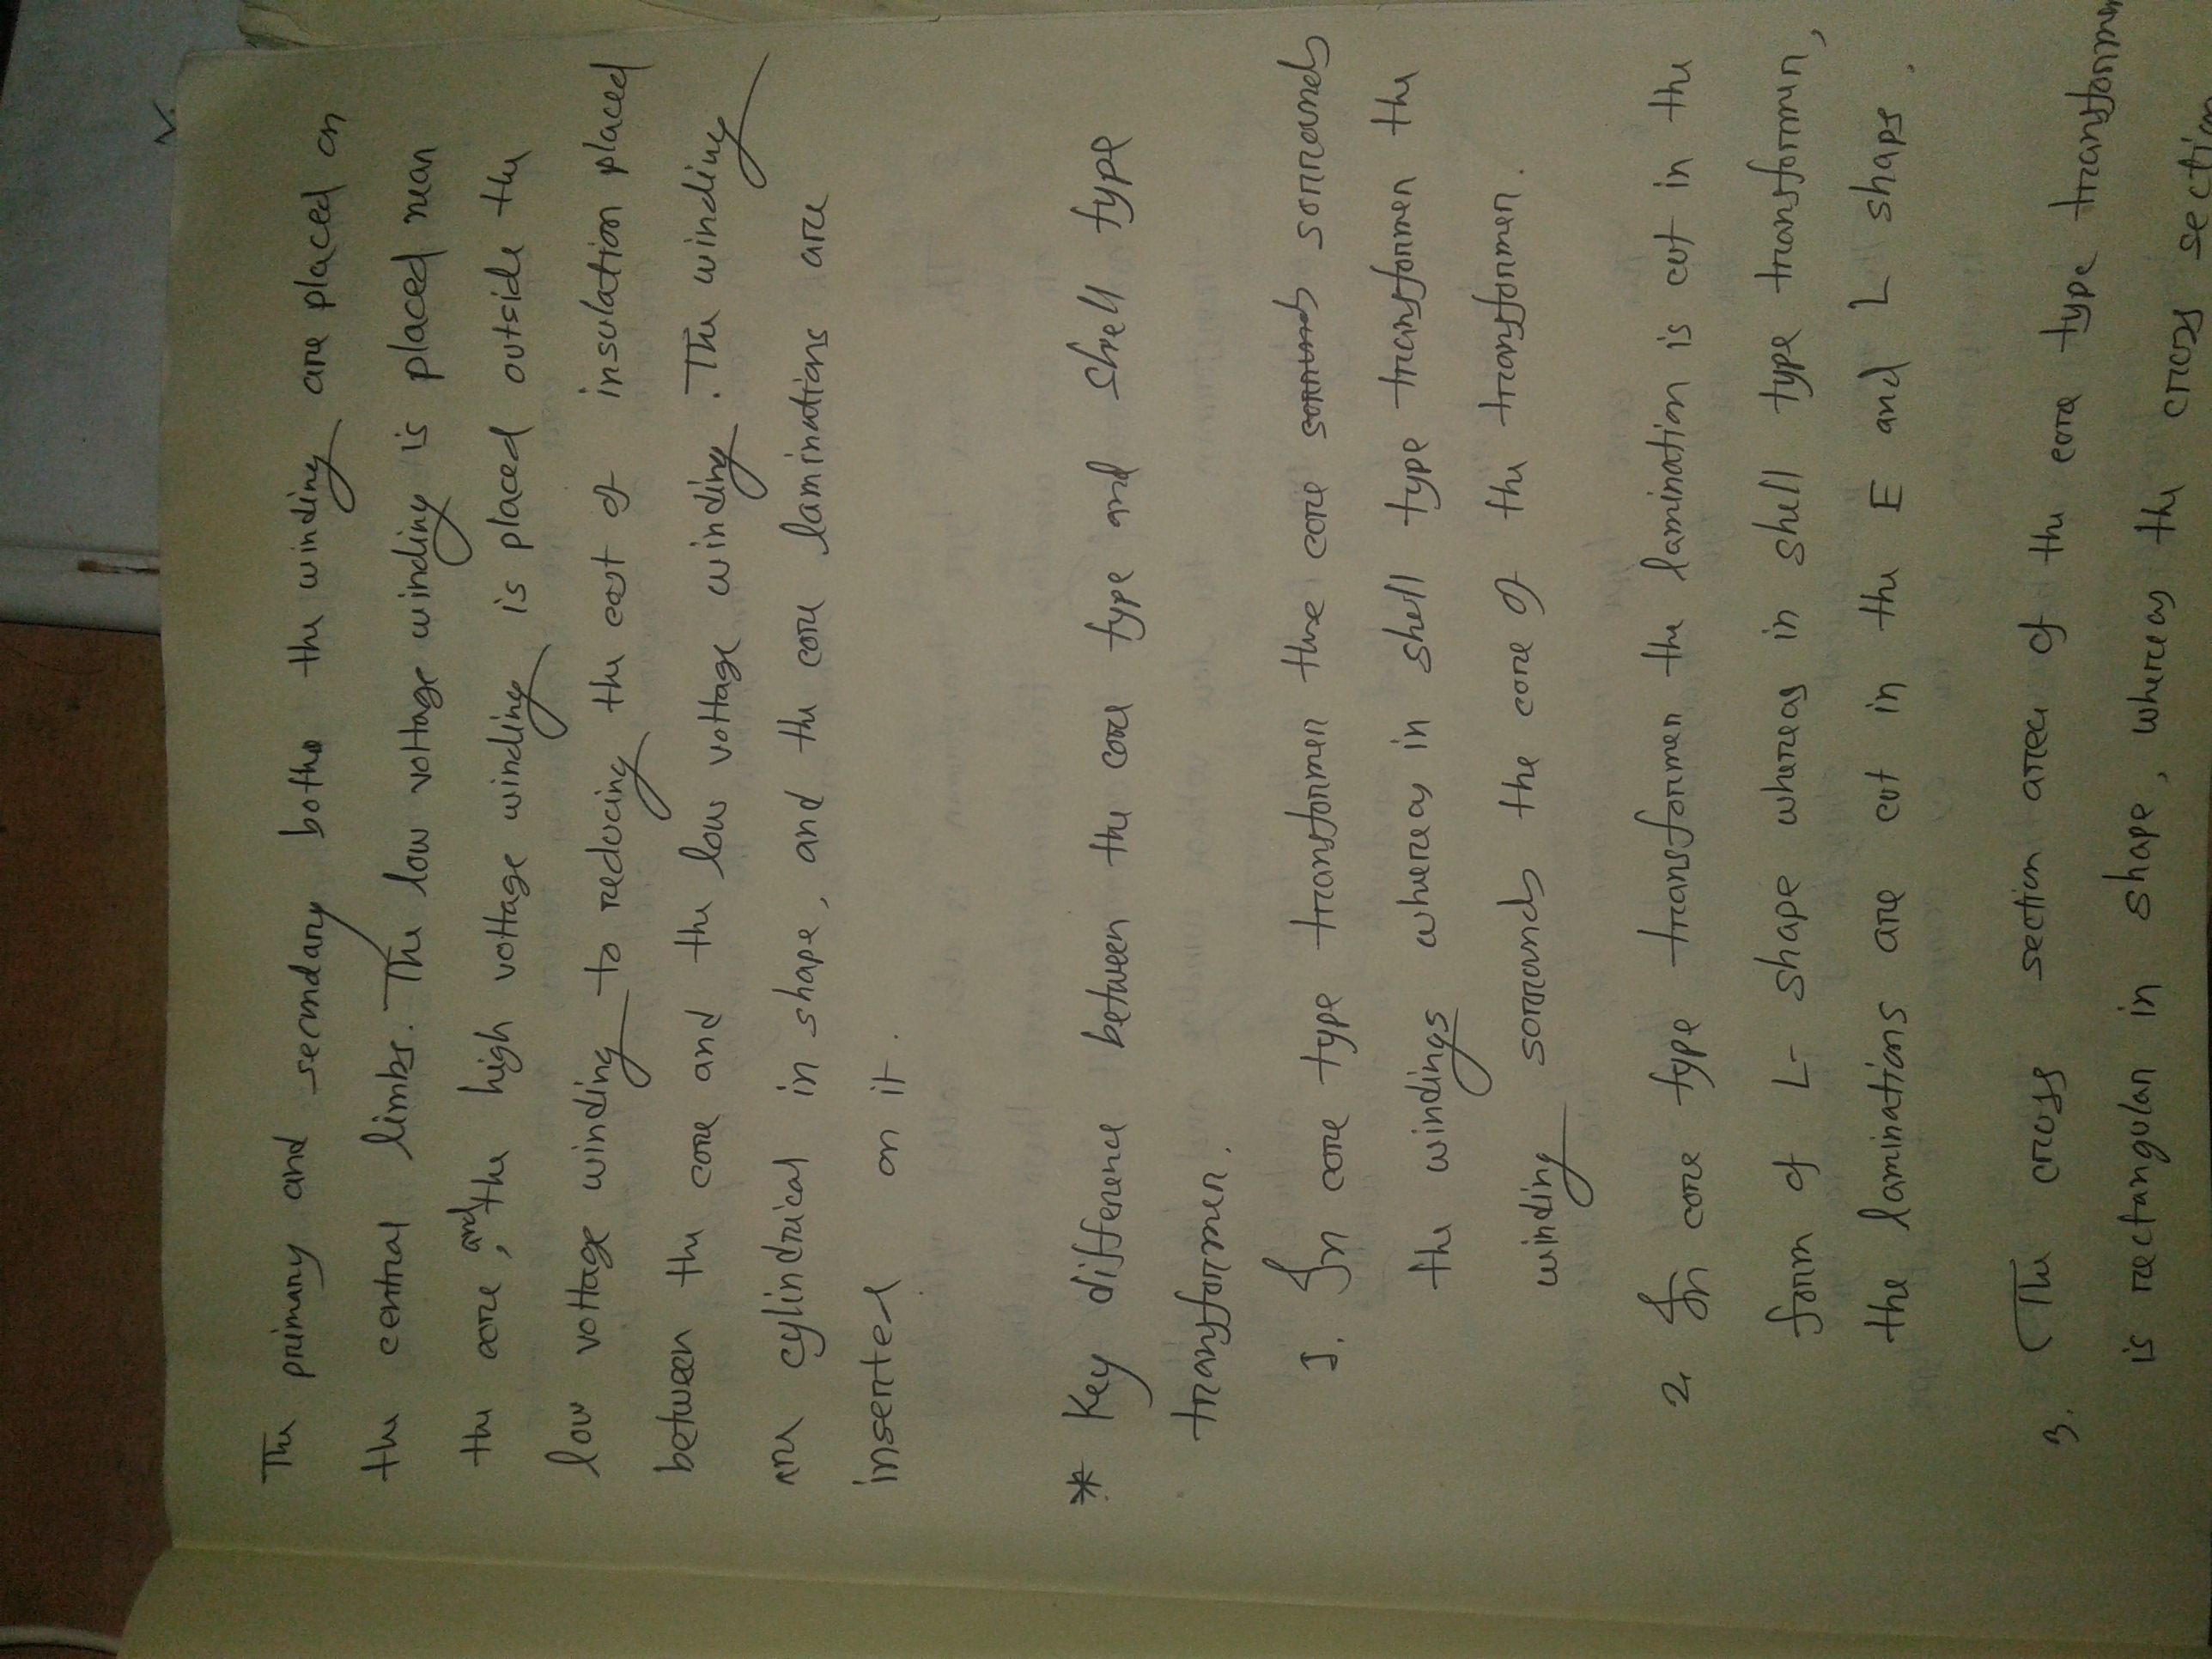 The primary and secondary both the winding are placed on
the central limbs. The low voltage winding is placed near
the core, and the high voltage winding is placed outside the
low voltage winding to reducing the cost of insulation placed
between the core and the low voltage winding. The winding
are cylindrical in shape, and the core laminations are
inserted on it.
* Key difference between the core type and shell type
transformer.
1. In core type transformer the core sorrands
the windings whereas in shell type transformer the
winding sorrands the core of the transformer.
2. In core type transformer the lamination is cut in the
form of L- shape whereas in shell type transformer,
the laminations are cut in the E and L shape.
3. The cross section area of the core type transformer
is rectangular in shape, whereas the cross section